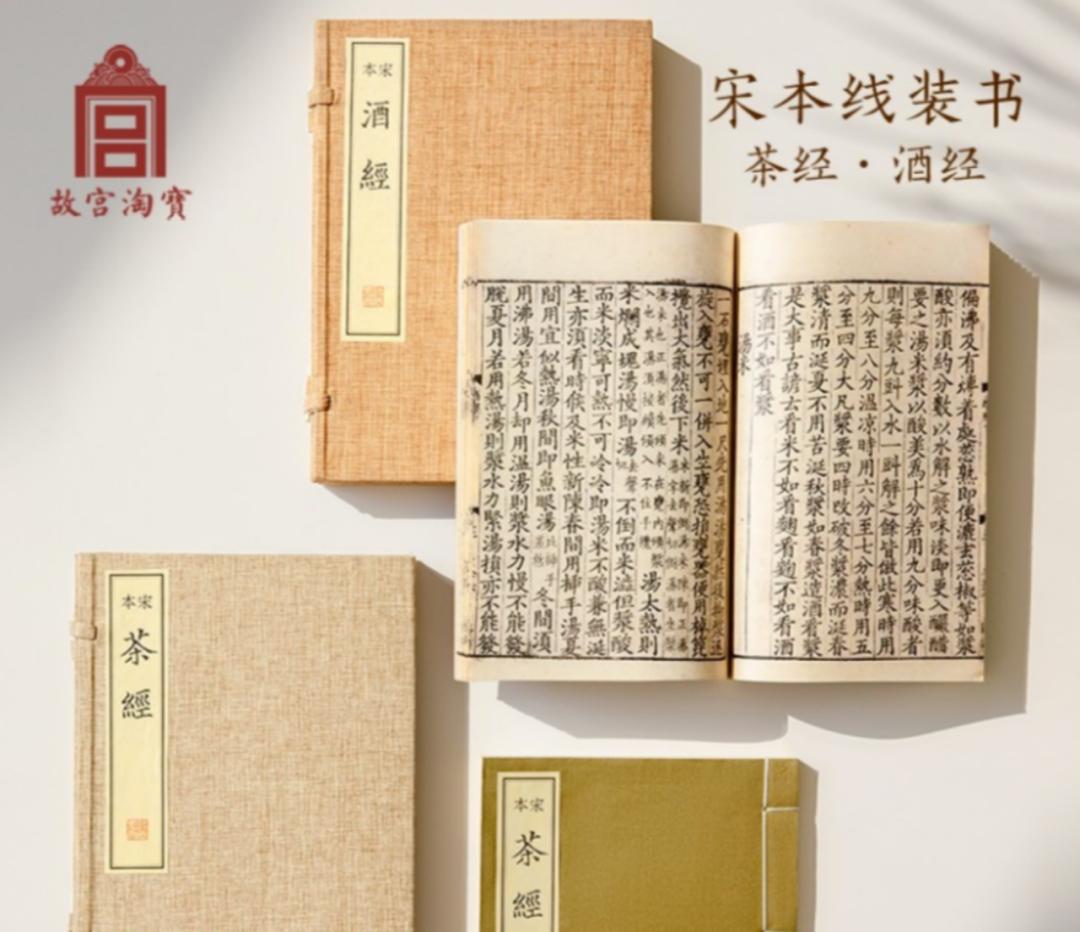 故宫淘寶
宋本线装书
茶经·酒经
宋本
酒經
偏沸及有㷸着處葱熟即便漉去葱椒等如漿
酸亦須約分數以水解之漿味淡即更入釅醋
要之湯米漿以酸美爲十分若用九分味酸者
則每漿九㪷入水一㪷解之餘皆倣此寒時用
九分至八分温涼時用六分至七分熱時用五
分至四分大凡漿要四時改破冬漿濃而涎春
漿清而涎夏不用苦涎秋漿如春漿造酒看漿
是大事古諺云看米不如看麴看麴不如看酒
看酒不如看漿
湯米
一石甕埋入地一尺先用湯湯甕然後拗漿逐
旋入甕不可一併入生甕恐損甕器便用棹篦
攪出大氣然後下米
湯太熱則
米爛成塊湯慢即湯不倒而米澁但漿酸
而米淡寧可熱不可冷冷即湯米不酸兼無涎
生亦須看時候及米性新陳春間用插手湯夏
間用宜似熱湯秋間即魚眼湯冬間須
用沸湯若冬月却用温湯則漿水力慢不能發
脫夏月若用熱湯則漿水力緊湯損亦不能發
宋本
茶經
宋本
茶經